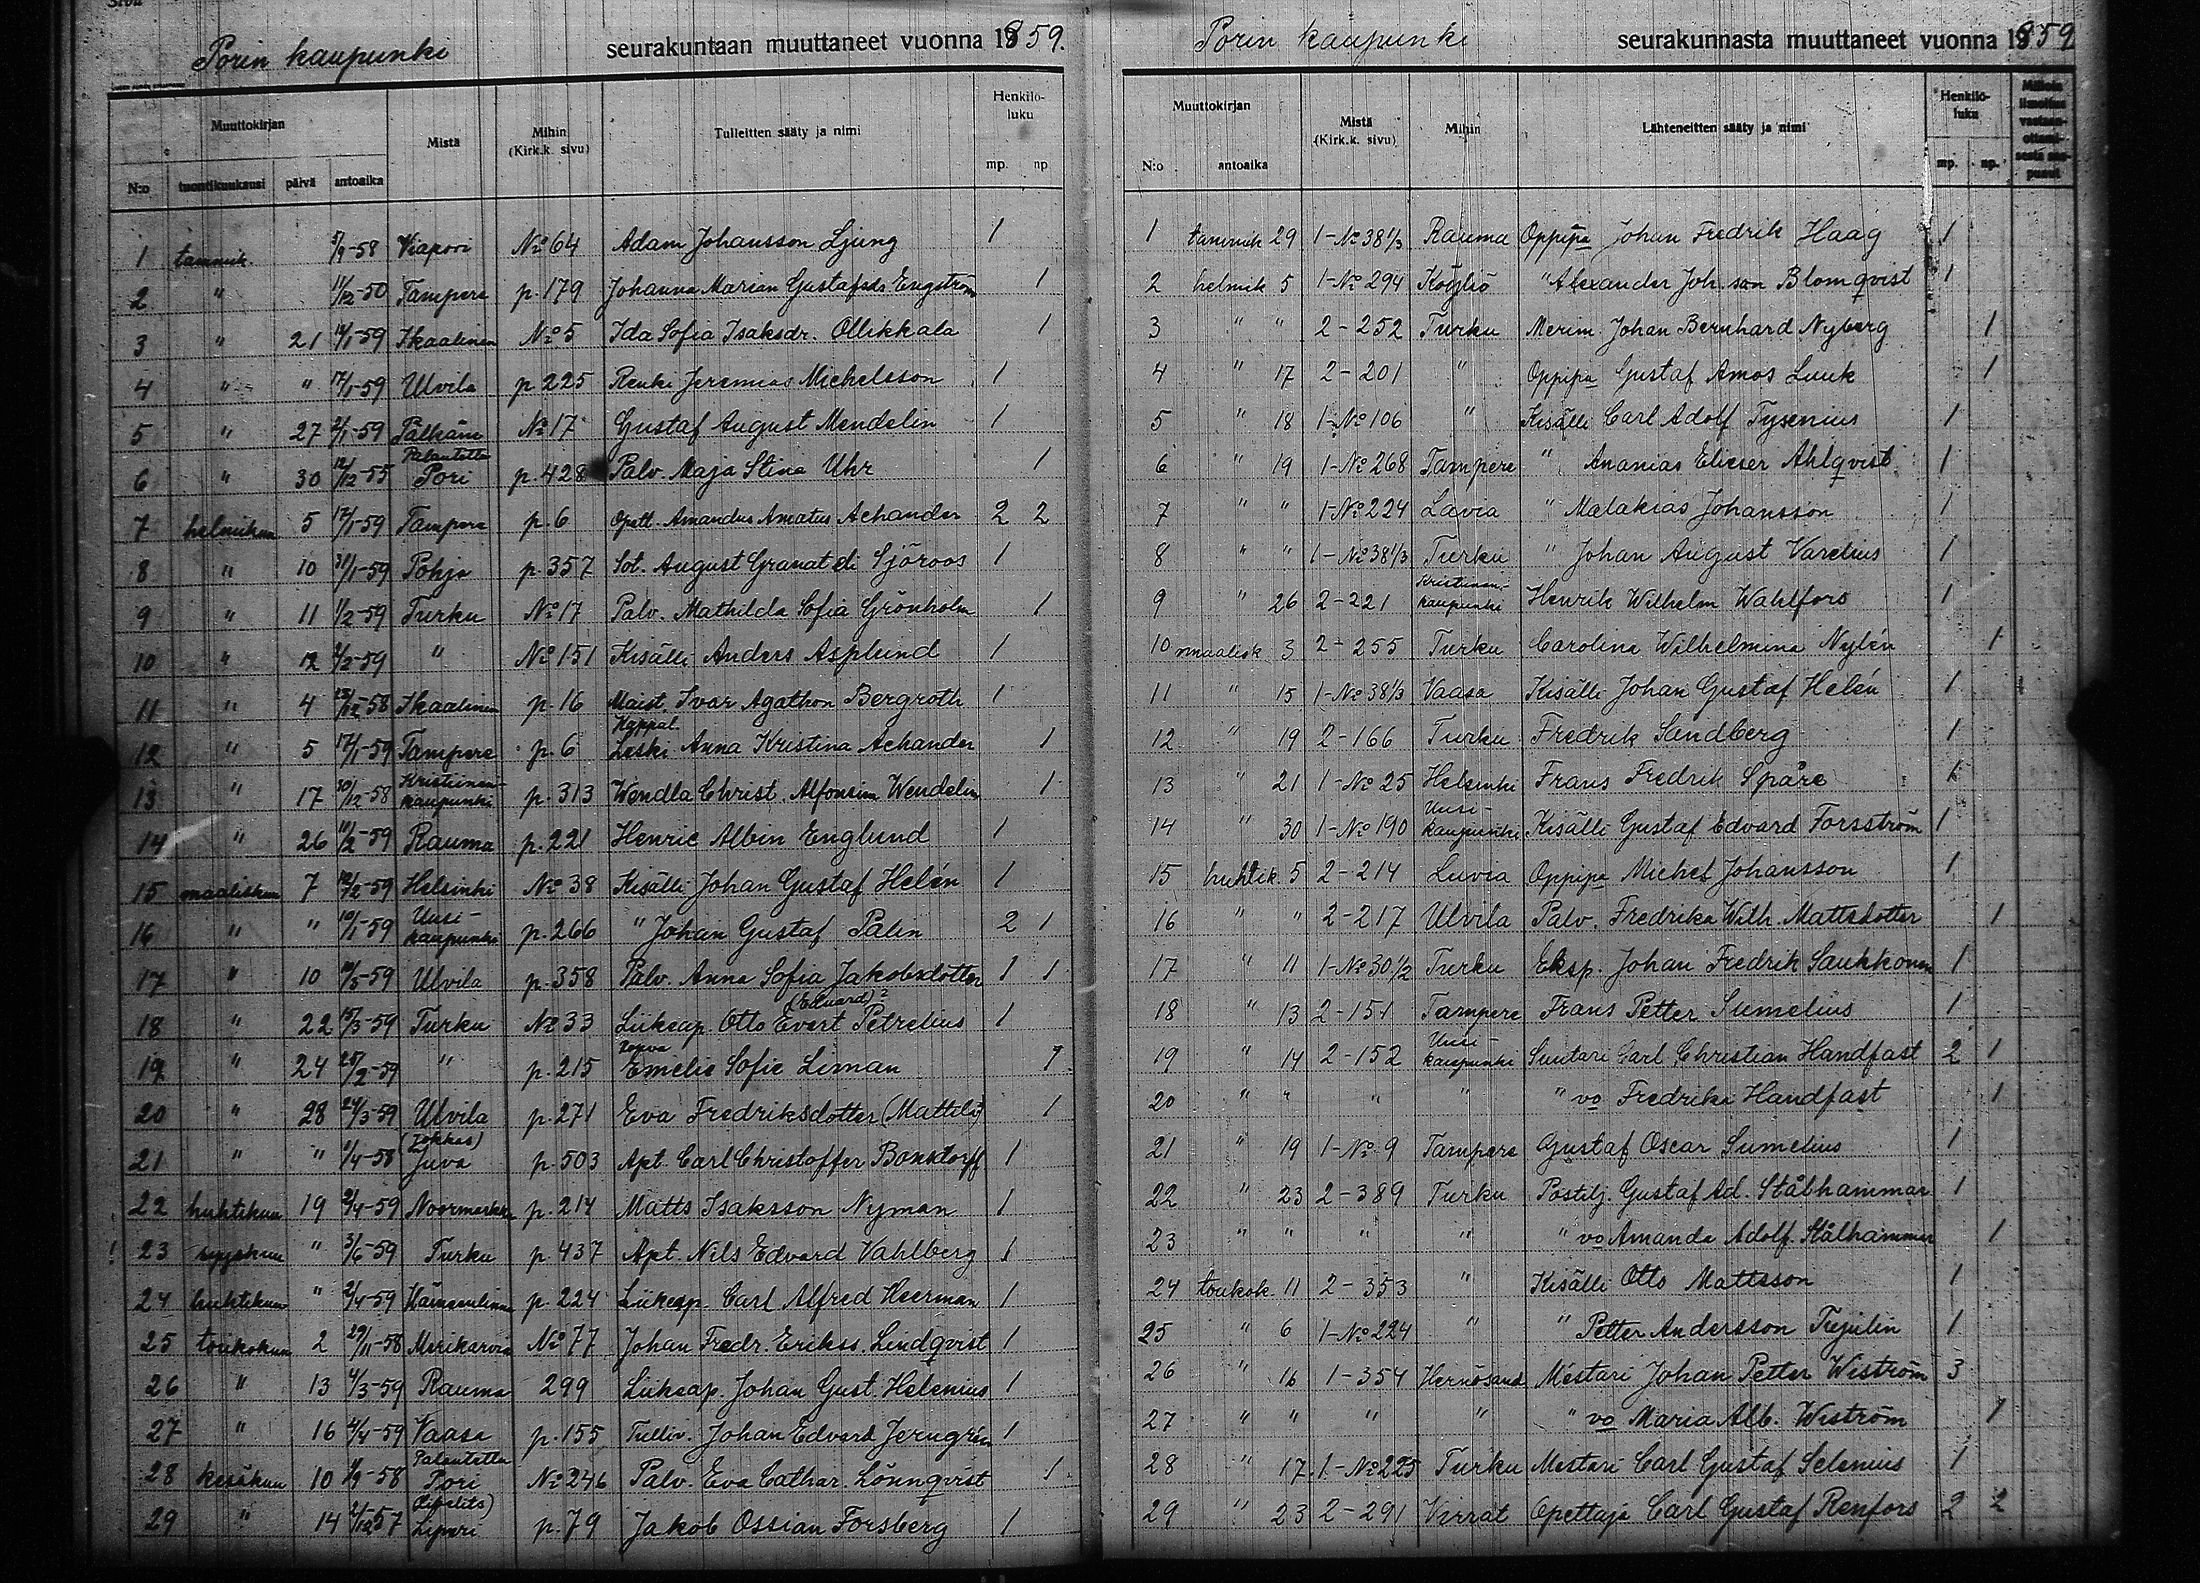 Porin kaupunki seurakuntaan muuttaneet vuonna 1859.
Muuttokirjan Mistä Mihin (Kirk.k. sivu) Tulleitten sääty ja nimi Henkilö-luku
N:o tuontikuukausi päivä antoaika mp. np
1 tammik. 5/9-58 Viapori No 64 Adam Johansson Ljung 1
2 " 11/12-50 Tampere p. 179 Johanna Marian Gustafsdr Engström 1
3 " 21 14/1-59 Ikaalinen No 5 Ida Sofia Isaksdr. Ollikkala 1
4 " " 17/1-59 Ulvila p. 225 Renki Jeremias Michelsson 1
5 " 27 2/1-59 Pälkäne No 17 Gustaf August Mendelin 1
6 " 30 12/12-55 Palautettu Pori p. 428 Palv. Maja Stina Uhr 1
7 helmikuu 5 17/1-59 Tampere p. 6 Opett. Amandus Amatus Achander 2 2
8 " 10 31/1-59 Pohja p. 357 Sot. August Granat eli Sjöroos 1
9 " 11 1/2-59 Turku No 17 Palv. Mathilda Sofia Grönholm 1
10 " 12 2/2-59 " No 151 Kisälli Anders Asplund 1
11 " 4 28/12-58 Ikaalinen p. 16 Maist. Ivar Agathon Bergroth 1
12 " 5 17/1-59 Tampere p. 6 Kappal. Leski Anna Kristina Achander 1
13 " 17 30/12-58 Kristiinan-kaupunki p. 313 Wendla Christ. Alfonsim Wendelin 1
14 " 26 11/2-59 Rauma p. 221 Henric Albin Englund 1
15 maaliskuu 7 12/2-59 Helsinki No 38 Kisälli Johan Gustaf Helén 1
16 " " 10/1-59 Uusi-kaupunki p. 266 " Johan Gustaf Palin 2 1
17 " 10 10/3-59 Ulvila p. 358 Palv. Anna Sofia Jakobsdotter 1 1
18 " 22 15/3-59 Turku No 33 Liikeap. Otto Evert (Eduard)? Petrelius 1
19 " 24 25/2-59 " p. 215 Rouva Emelie Sofie Liman 1
20 " 28 24/3-59 Ulvila p. 271 Eva Fredriksdotter (Mattila) 1
21 " " 1/4-58 (Jokkas) Juva p. 503 Apt. Carl Christoffer Bonsdorff 1
22 huhtikuu 19 2/4-59 Noormarkku p. 214 Matts Isaksson Nyman 1
23 syyskuu " 3/6-59 Turku p. 437 Apt. Nils Edvard Vahlberg 1
24 huhtikuu " 2/4-59 Hämeenlinna p. 224 Liikeap. Carl Alfred Heerman 1
25 toukokuu 2 29/11-58 Merikarvia No 77 Johan Fredr. Erikss. Lindqvist 1
26 " 13 4/3-59 Rauma 299 Liikeap. Johan Gust. Helenius 1
27 " 16 4/4-59 Vaasa p. 155 Tulliv. Johan Edvard Jerngren 1
28 kesäkuu 10 1/9-58 Palautettu Pori No 246 Palv. Eva Cathar. Lönnqvist 1
29 " 14 2/12-57 Liperi p. 79 Jakob Ossian Forsberg 1
Porin kaupunki seurakunnasta muuttaneet vuonna 1859
Muuttokirjan Mistä (Kirk.k. sivu) Mihin Lähteneitten sääty ja nimi Henkilö-luku
N:o antoaika mp. np.
1 tammik 29 1-No 38 1/3 Rauma Oppipa Johan Fredrik Haag 1
2 helmik 5 1-No 294 Köyliö " Alexander Joh.son Blomqvist 1
3 " " 2-252 Turku Merim. Johan Bernhard Nyberg 1
4 " 17 2-201 " Oppipa Gustaf Amos Luuk 1
5 " 18 1-No 106 " Kisälli Carl Adolf Tysenius 1
6 " 19 1-No 268 Tampere " Ananias Elieser Ahlqvist 1
7 " " 1-No 224 Lavia " Malakias Johansson 1
8 " " 1-No 38 1/3 Turku " Johan August Varelius 1
9 " 26 2-221 Kristiinan-kaupunki Henrik Wilhelm Wahlfors 1
10 maalisk 3 2-255 Turku Carolina Wilhelmina Nylén 1
11 " 15 1-No 38 1/3 Vaasa Kisälli Johan Gustaf Helén 1
12 " 19 2-166 Turku Fredrik Sandberg 1
13 " 21 1-No 25 Helsinki Frans Fredrik Spåre 1
14 " 30 1-No 190 Uusi-kaupunki Kisälli Gustaf Edvard Forsström 1
15 huhtik 5 2-214 Luvia Oppipa Michel Johansson 1
16 " " 2-217 Ulvila Palv. Fredrika Wilh. Mattsdotter 1
17 " 11 1-No 30 1/2 Turku Eksp. Johan Fredrik Saukkonen 1
18 " 13 2-151 Tampere Frans Petter Sumelius 1
19 " 14 2-152 Uusi-kaupunki Suutari Carl Christian Handfast 2 1
20 " " " " " vo Fredrika Handfast 1
21 " 19 1-No 9 Tampere Gustaf Oscar Sumelius 1
22 " 23 2-389 Turku Postilj. Gustaf Ad. Stålhammar 1
23 " " " " " vo Amanda Adolf. Stålhammar 1
24 toukok 11 2-353 " Kisälli Otto Mattsson 1
25 " 6 1-No 224 " " Petter Andersson Tujulin 1
26 " 16 1-354 Hernösand Mestari Johan Petter Wiström 3
27 " " " " " vo Maria Alb. Wiström 1
28 " 17 1-No 225 Turku Mestari Carl Gustaf Selenius 1
29 " 23 2-291 Virrat Opettaja Carl Gustaf Renfors 2 2